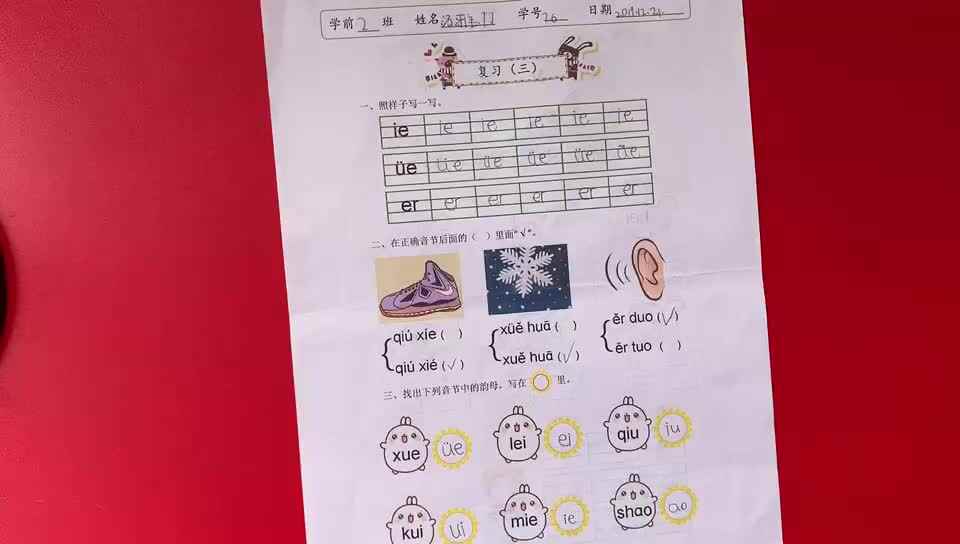 学前 2 班 姓名 学号 26 日期 2019.12.24.
复习（三）
一、照样子写一写。
ie ie ie ie ie ie
üe üe üe üe üe üe
er er er er er er
二、在正确音节后面的（ ）里面"√"。
qiú xíe ( ) xüě huā ( ) ěr duo (√)
qiú xié (√) xuě huā (√) ěr tuo ( )
三、找出下列音节中的韵母，写在 里。
xue üe lei ei qiu iu
kui ui mie ie shao ao